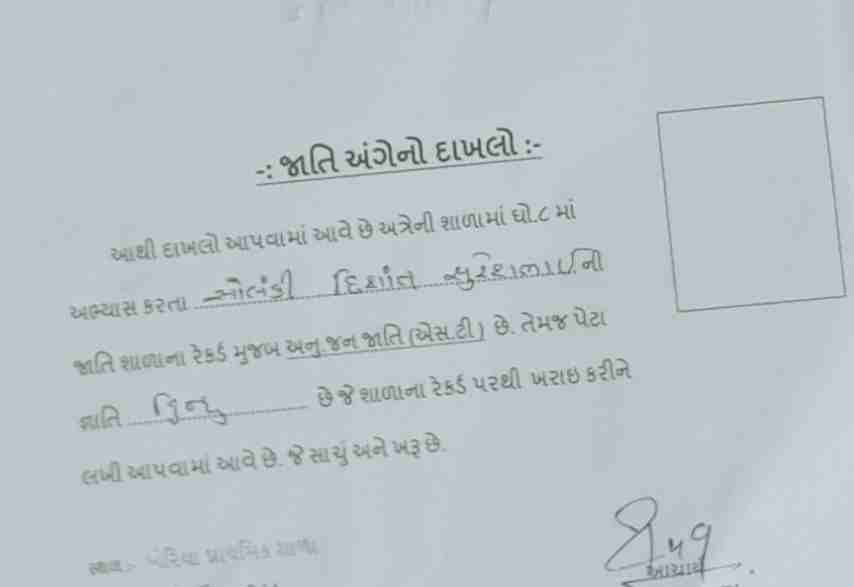 -: જાતિ અંગેનો દાખલો :-
આથી દાખલો આપવામાં આવે છે અત્રેની શાળામાં ધો.૮ માં
અભ્યાસ કરતા સોલંકી દિશાંત સુરેશભાઈની
જાતિ શાળાના રેકર્ડ મુજબ અનુ.જન જાતિ (એસ.ટી) છે. તેમજ પેટા
જ્ઞાતિ છે જે શાળાના રેકર્ડ પરથી ખરાઇ કરીને
લખી આપવામાં આવે છે. જે સાચું અને ખરૂ છે.
પ્રાથમિક શાળા
આચાર્ય